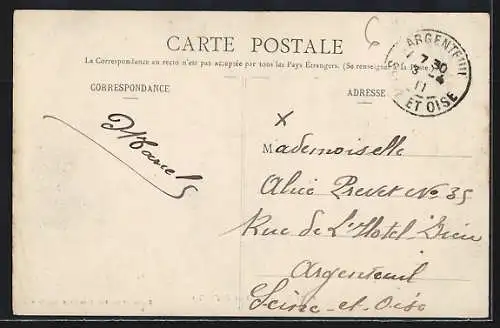 CARTE POSTALE
La Correspondance au recto n'est pas acceptée par tous les Pays Étrangers. (Se renseigner à la Poste.)
CORRESPONDANCE
ADRESSE
ARGENTEUIL
7 30
3 -4
11
ET OISE
x
Mademoiselle
Alice Prevet No 35
Rue de L'Hotel Dieu
Argenteuil
Seine-et-Oise